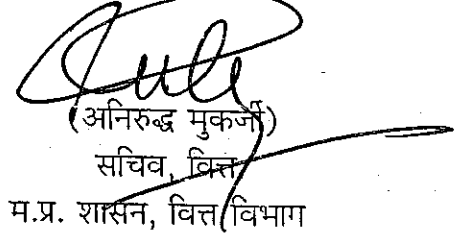 (अनिरुद्ध मुकर्जी)
सचिव, वित्त
म.प्र. शासन, वित्त विभाग